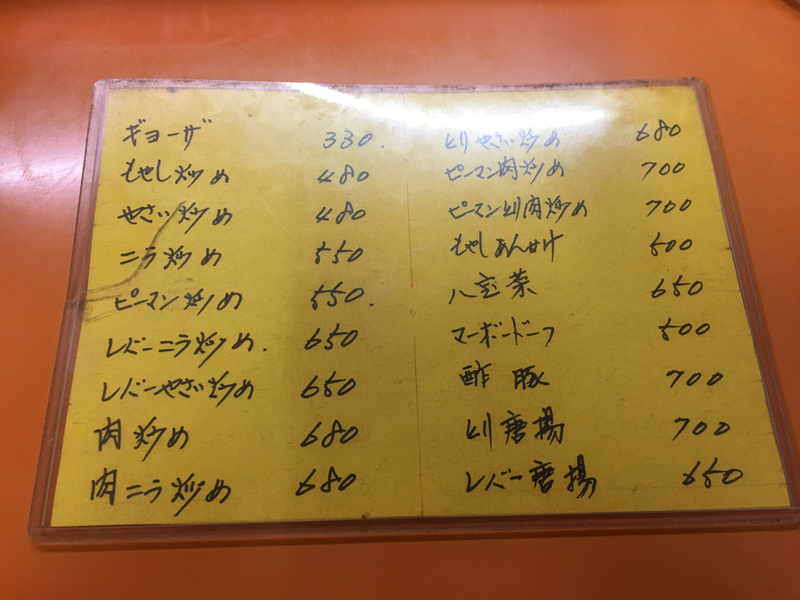 ギョーザ 330.
もやし炒め 480
やさい炒め 480
ニラ炒め 550
ピーマン炒め 550.
レバーニラ炒め. 650
レバーやさい炒め 650
肉炒め 680
肉ニラ炒め 680
とりやさい炒め 680
ピーマン肉炒め 700
ピーマンとり肉炒め 700
もやしあんかけ 500
八宝菜 650
マーボードーフ 500
酢豚 700
とり唐揚 700
レバー唐揚 650